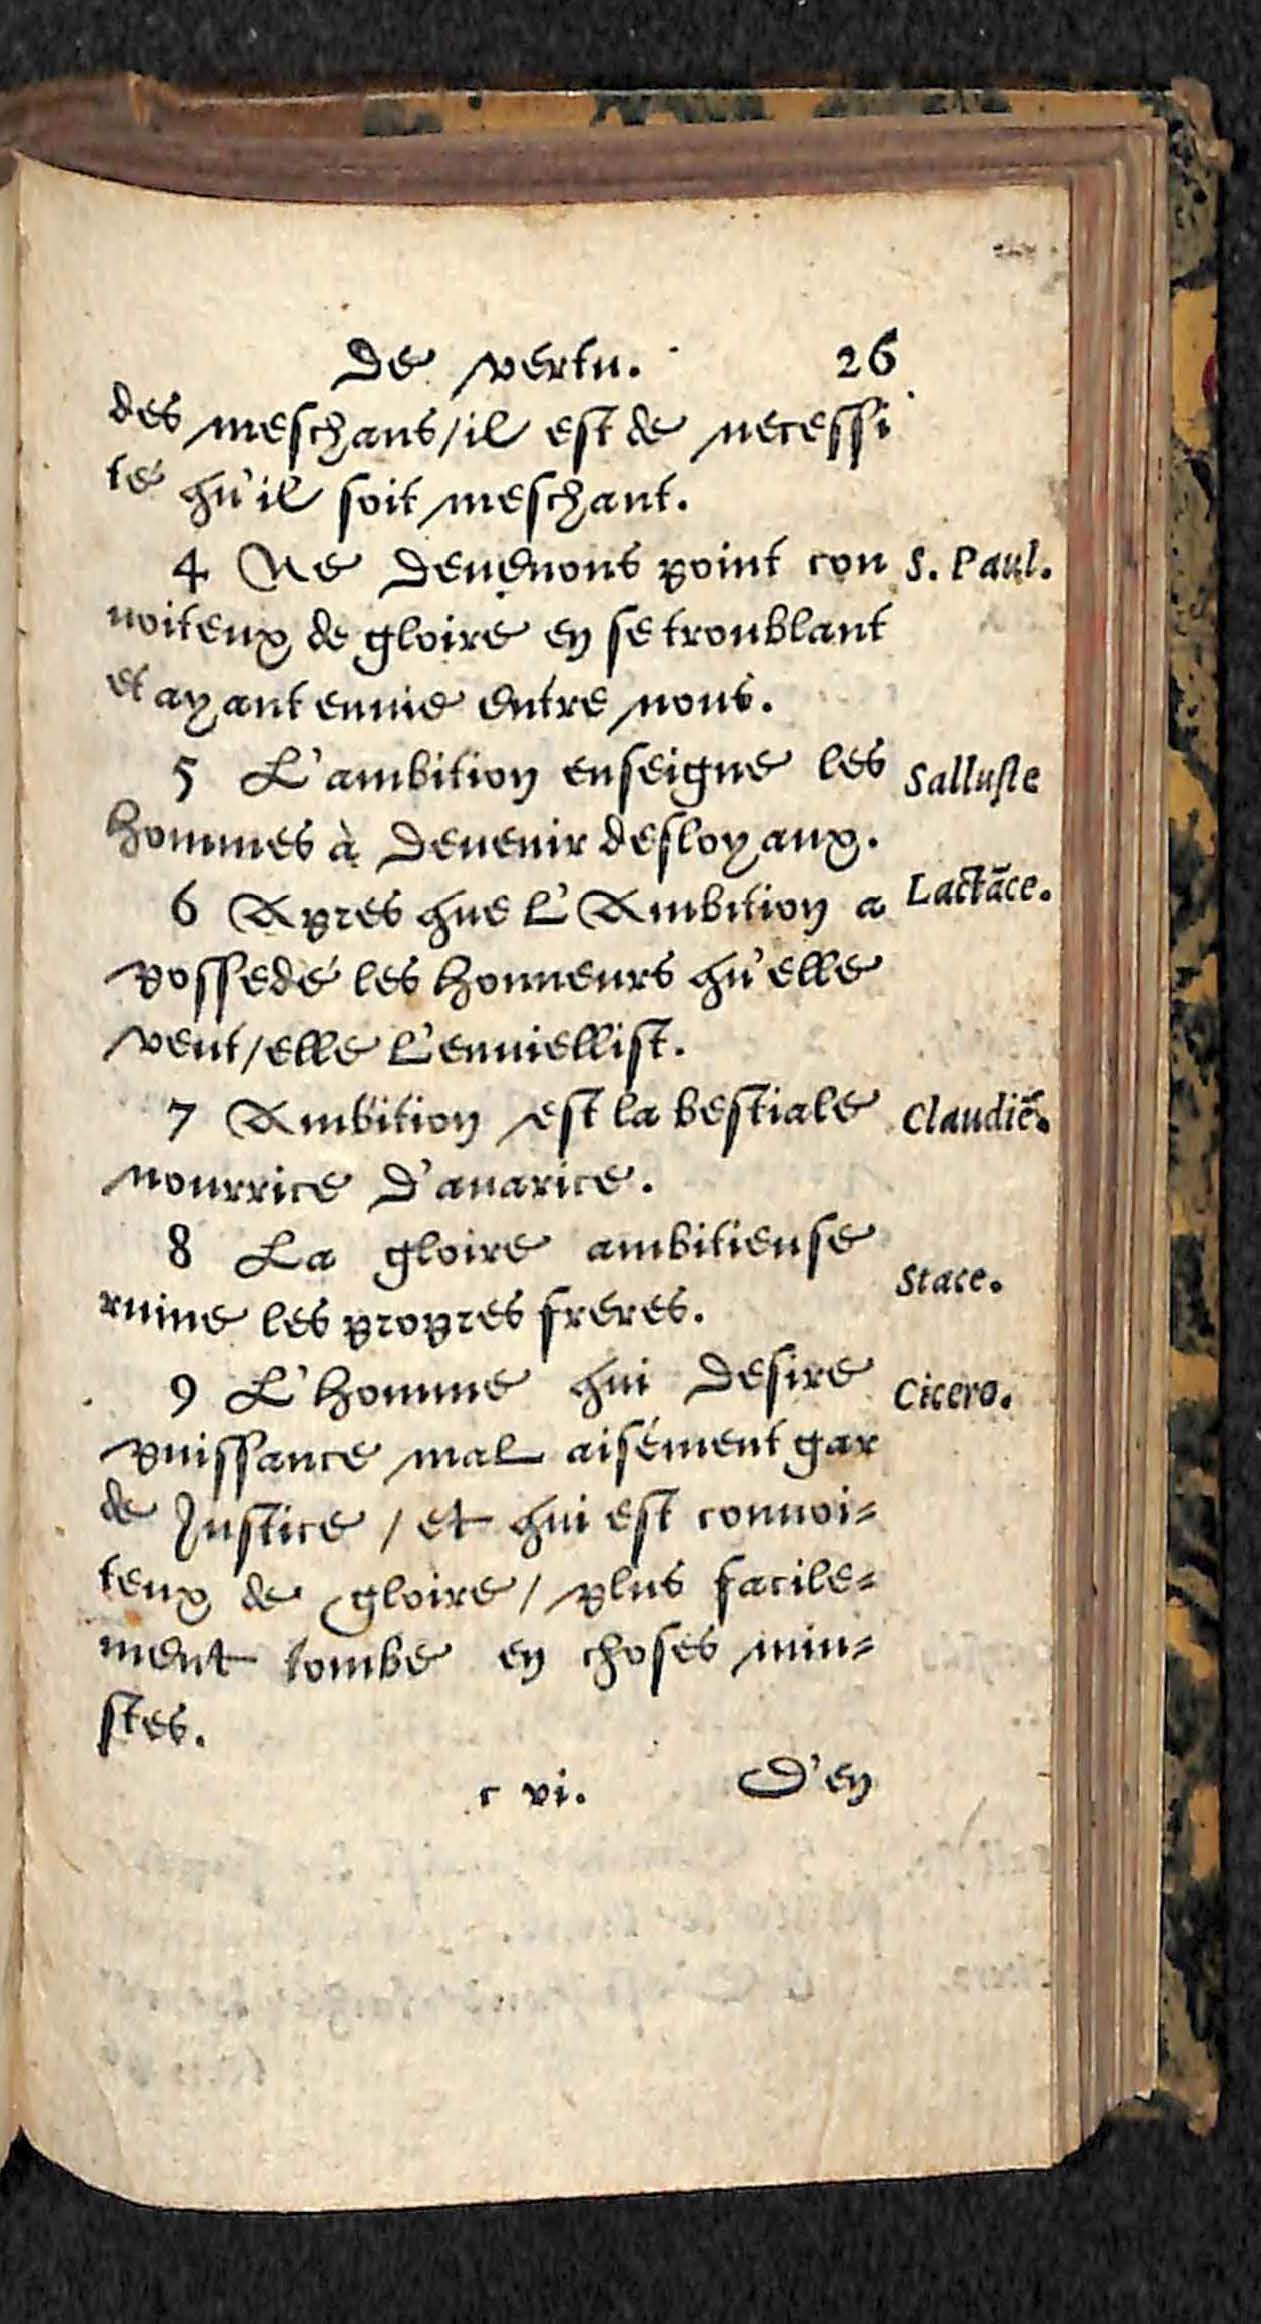 De vertu. 26
des meschans/il est de necessi
té qu'il soit meschant.
4 Ne deuenons point con S. Paul.
uoiteux de gloire en se troublant
et ayant enuie entre nous.
5 L'ambition enseigne les Salluste
hommes à deuenir desloyaux.
6 Apres que l'Ambition a Lactāce.
possedé les honneurs qu'elle
veut/elle l'enuiellist.
7 Ambition est la bestiale Claudiē.
nourrice d'auarice.
8 La gloire ambitieuse Stace.
ruine les propres freres.
9 L'homme qui desire Cicero.
puissance mal aisément gar
de Justice / et qui est conuoi=
teux de gloire / plus facile=
ment tombe en choses iniu=
stes.
c vi. D'en